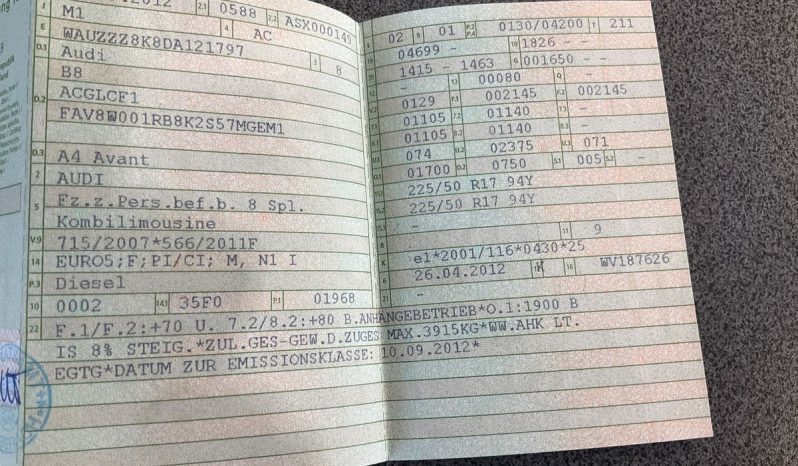 .2012 2.1 0588 2.2 ASX000140
J M1 4 AC
E WAUZZZ8K8DA121797 3 8
D.1 Audi
B8
D.2 ACGLCF1
FAV8W001RB8K2S57MGEM1
D.3 A4 Avant
2 AUDI
5 Fz.z.Pers.bef.b. 8 Spl.
Kombilimousine
V.9 715/2007*566/2011F
14 EURO5;F;PI/CI; M, N1 I
P.3 Diesel
10 0002 14.1 35F0 P.1 01968
L 02 9 01 P.2 P.4 0130/04200 T 211
18 04699 - 19 1826 - -
20 1415 - 1463 G 001650 - -
12 - 13 00080 Q -
V.7 0129 F.1 002145 F.2 002145
7.1 01105 7.2 01140 7.3 -
8.1 01105 8.2 01140 8.3 -
U.1 074 U.2 02375 U.3 071
O.1 01700 O.2 0750 S.1 005 S.2 -
15.1 225/50 R17 94Y
15.2 225/50 R17 94Y
15.3 -
R 11 9
K e1*2001/116*0430*25
6 26.04.2012 17 K 16 WV187626
21 -
22 F.1/F.2:+70 U. 7.2/8.2:+80 B.ANHÄNGEBETRIEB*O.1:1900 B
IS 8% STEIG.*ZUL.GES-GEW.D.ZUGES MAX.3915KG*WW.AHK LT.
EGTG*DATUM ZUR EMISSIONSKLASSE: 10.09.2012*